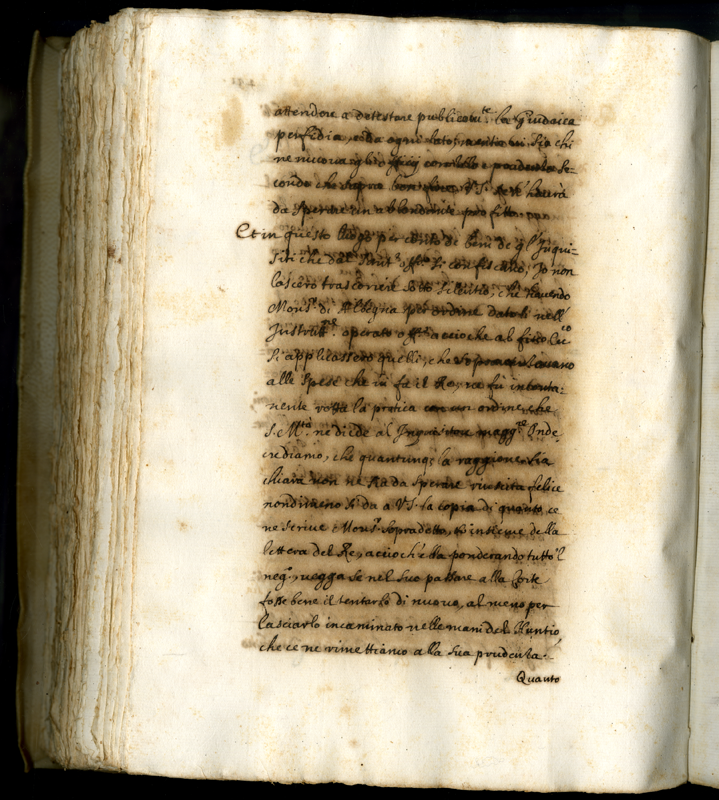 attendere a detestare publicam.te la Giudaica
perfidia, et da ogni lato,
ne nuova gl'offitij con ello e
conda che sopra V.S. ne haverà
da sperare un abbondante profitto.
Et in questo luogo per conto de beni de gl'Inqui=
siti che dal Sant'off.o si confiscano, Io non
lascerò trascorrere sotto silentio, che havendo
Mons.r di Albegna per ordine datoli nell'
Instrutt.ne operato off.ii acciò che ab
si applicassero quelli, che sopra
alle spese che in fa il Rè, ne fù inconta=
nente rotta la pratica con ordine, che
S. M.tà ne diede al Inquisitore magg.re Onde
crediamo, che quantunq; la raggione sia
chiara non ne sia da sperare riuscita felice
nondimeno si dà a V.S. la copia di quanto ce
ne scrive Mons.r sopradetto, et insieme della
lettera del Rè, acciò ch'ella ponderando tutto 'l
neg.o, vegga se nel suo passare alla Corte
fosse bene il tentarlo di nuovo, al meno per
lasciarlo incaminato nelle mani del Nuntio,
che ce ne rimettiamo alla sua prudenza.
Quanto